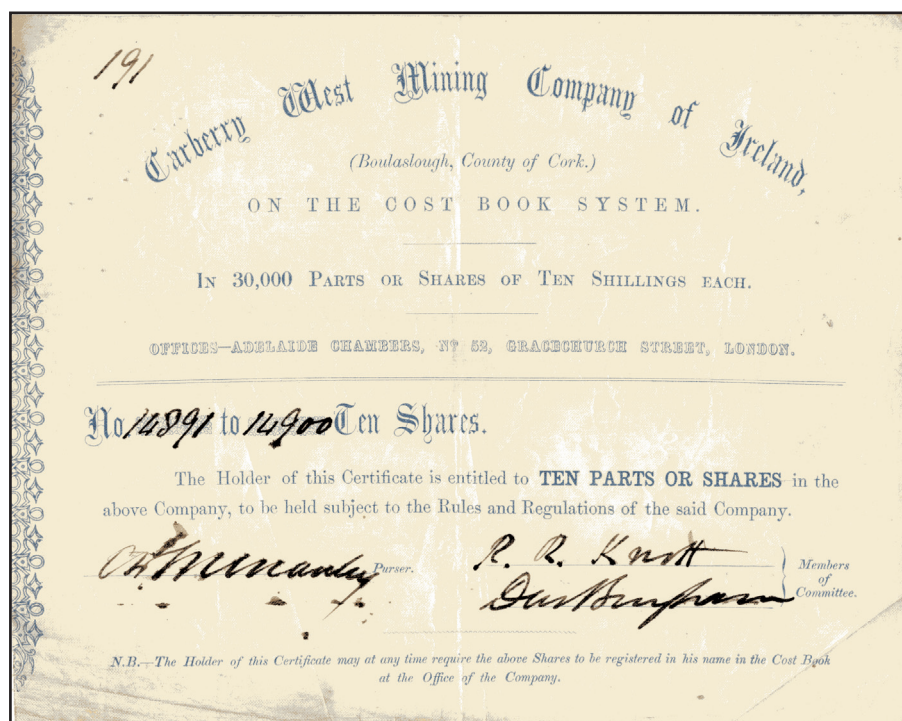 191
Carberry West Mining Company of Ireland,
(Boulaslough, County of Cork.)
ON THE COST BOOK SYSTEM.
In 30,000 Parts or Shares of Ten Shillings each.
OFFICES—ADELAIDE CHAMBERS, No 52, GRACECHURCH STREET, LONDON.
No 14891 to 14900 Ten Shares.
The Holder of this Certificate is entitled to TEN PARTS OR SHARES in the
above Company, to be held subject to the Rules and Regulations of the said Company.
Purser.
R. R. Knott
Members
of
Committee.
N.B.—The Holder of this Certificate may at any time require the above Shares to be registered in his name in the Cost Book
at the Office of the Company.